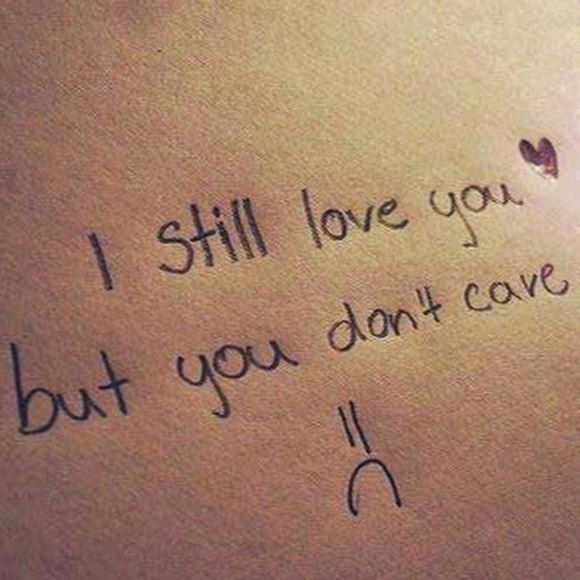 I still love you ♥
but you don't care
=(